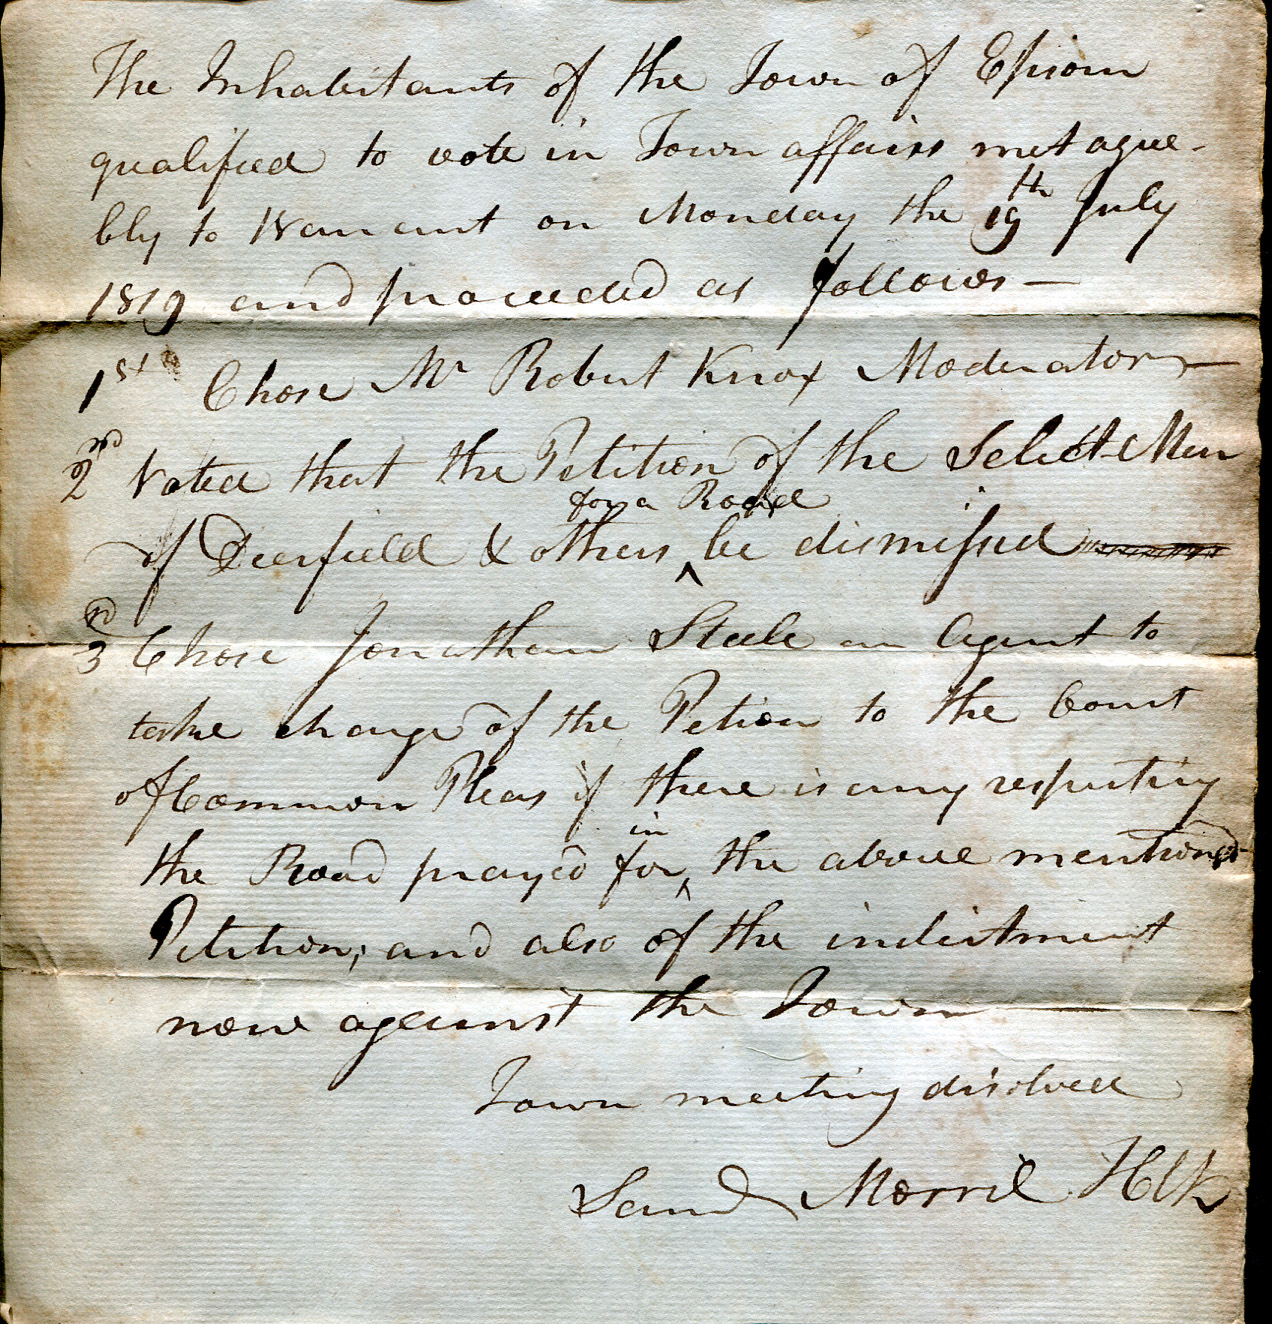 The Inhabitants of the Town of Epsom
qualified to vote in Town affairs met agree-
bly to Warrant on Monday the 19th July
1819 and proceeded as follows—
1st Chose Mr Robert Knox Moderator—
2nd Voted that the Petition of the Select Men
for a Road
of Deerfield & others ^ be dismissed
3rd Chose Jonathan Steele an Agent to
take charge of the Petion to the Court
of Common Pleas if there is any respecting
in
the Road prayed for ^ the above mentioned
Petition; and also of the indictment
now against the Town—
Town meeting disolved
Morril